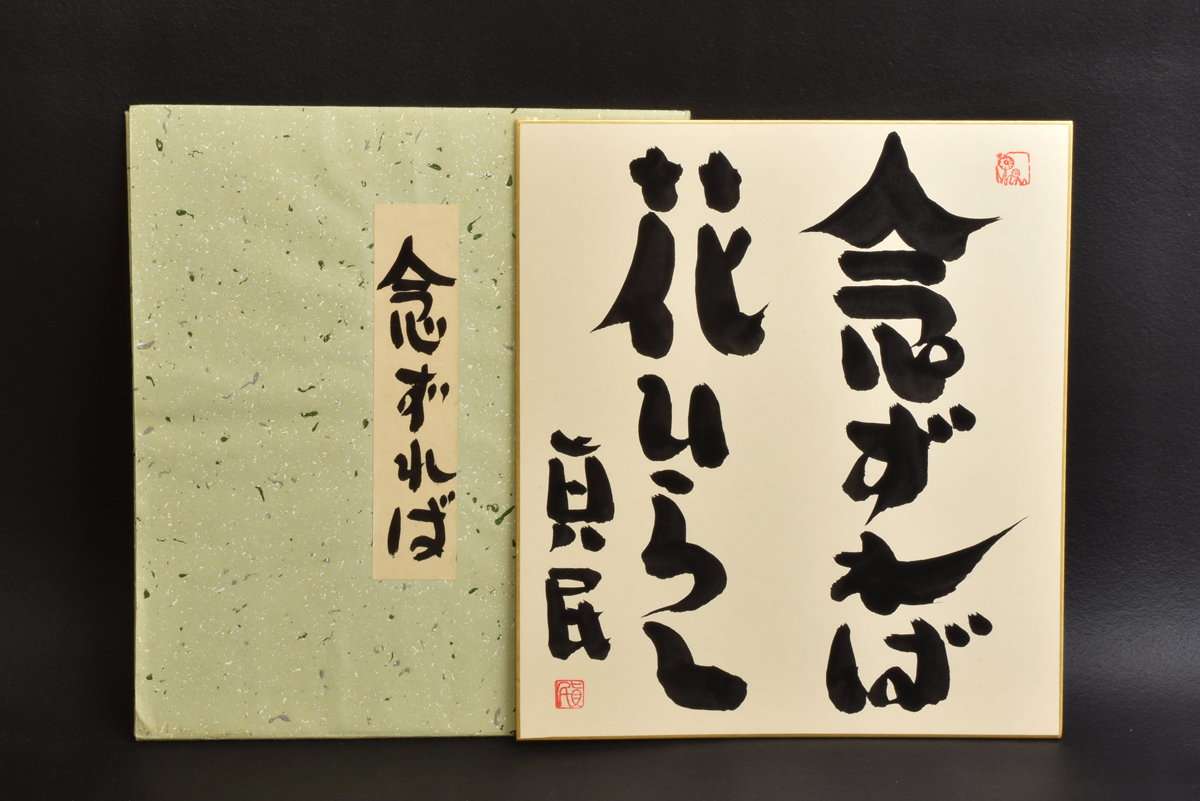 念ずれば
念ずれば
花ひらく
真民